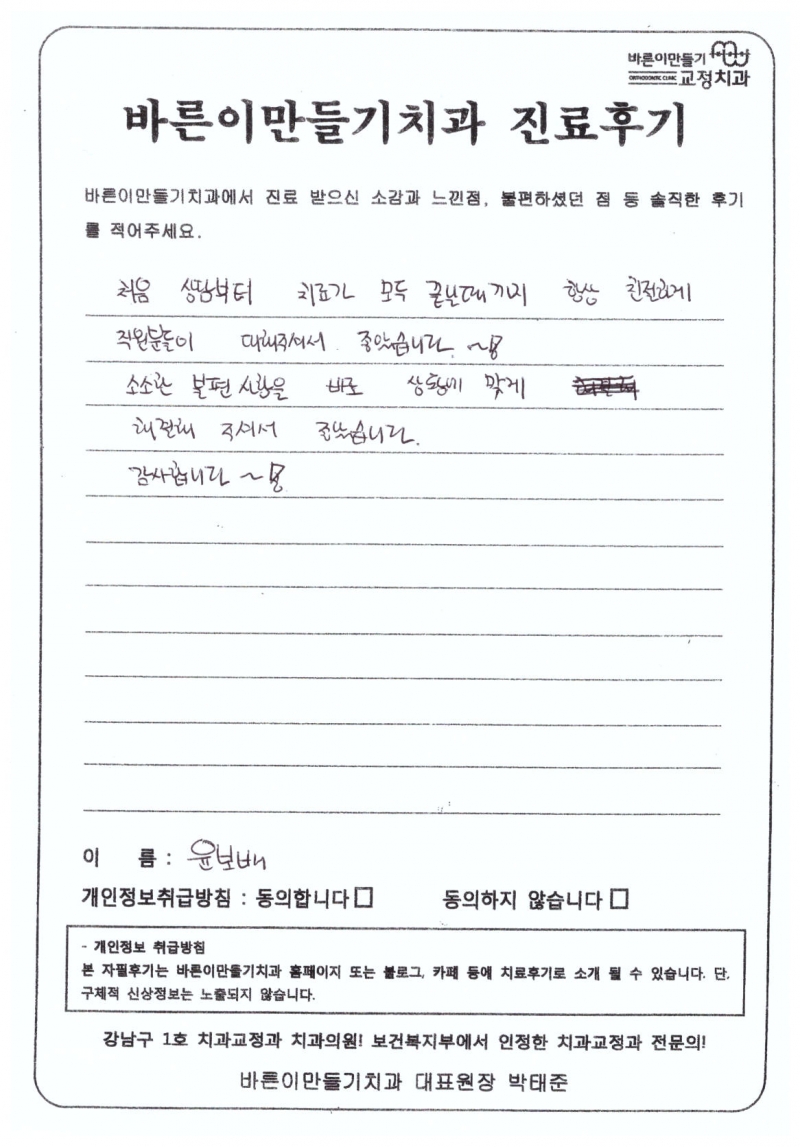 바른이만들기
ORTHODONTIC CLINIC 교정치과
바른이만들기치과 진료후기
바른이만들기치과에서 진료 받으신 소감과 느낀점, 불편하셨던 점 등 솔직한 후기
를 적어주세요.
처음 상담부터 치료가 모두 끝날때까지 항상 친절하게
직원분들이 대해주셔서 좋았습니다. ~
소소한 불편사항을 바로 상황에 맞게
해결해 주셔서 좋았습니다.
감사합니다 ~
이 름 : 윤보배
개인정보취급방침 : 동의합니다 □ 동의하지 않습니다 □
- 개인정보 취급방침
본 자필후기는 바른이만들기치과 홈페이지 또는 블로그, 카페 등에 치료후기로 소개 될 수 있습니다. 단,
구체적 신상정보는 노출되지 않습니다.
강남구 1호 치과교정과 치과의원! 보건복지부에서 인정한 치과교정과 전문의!
바른이만들기치과 대표원장 박태준